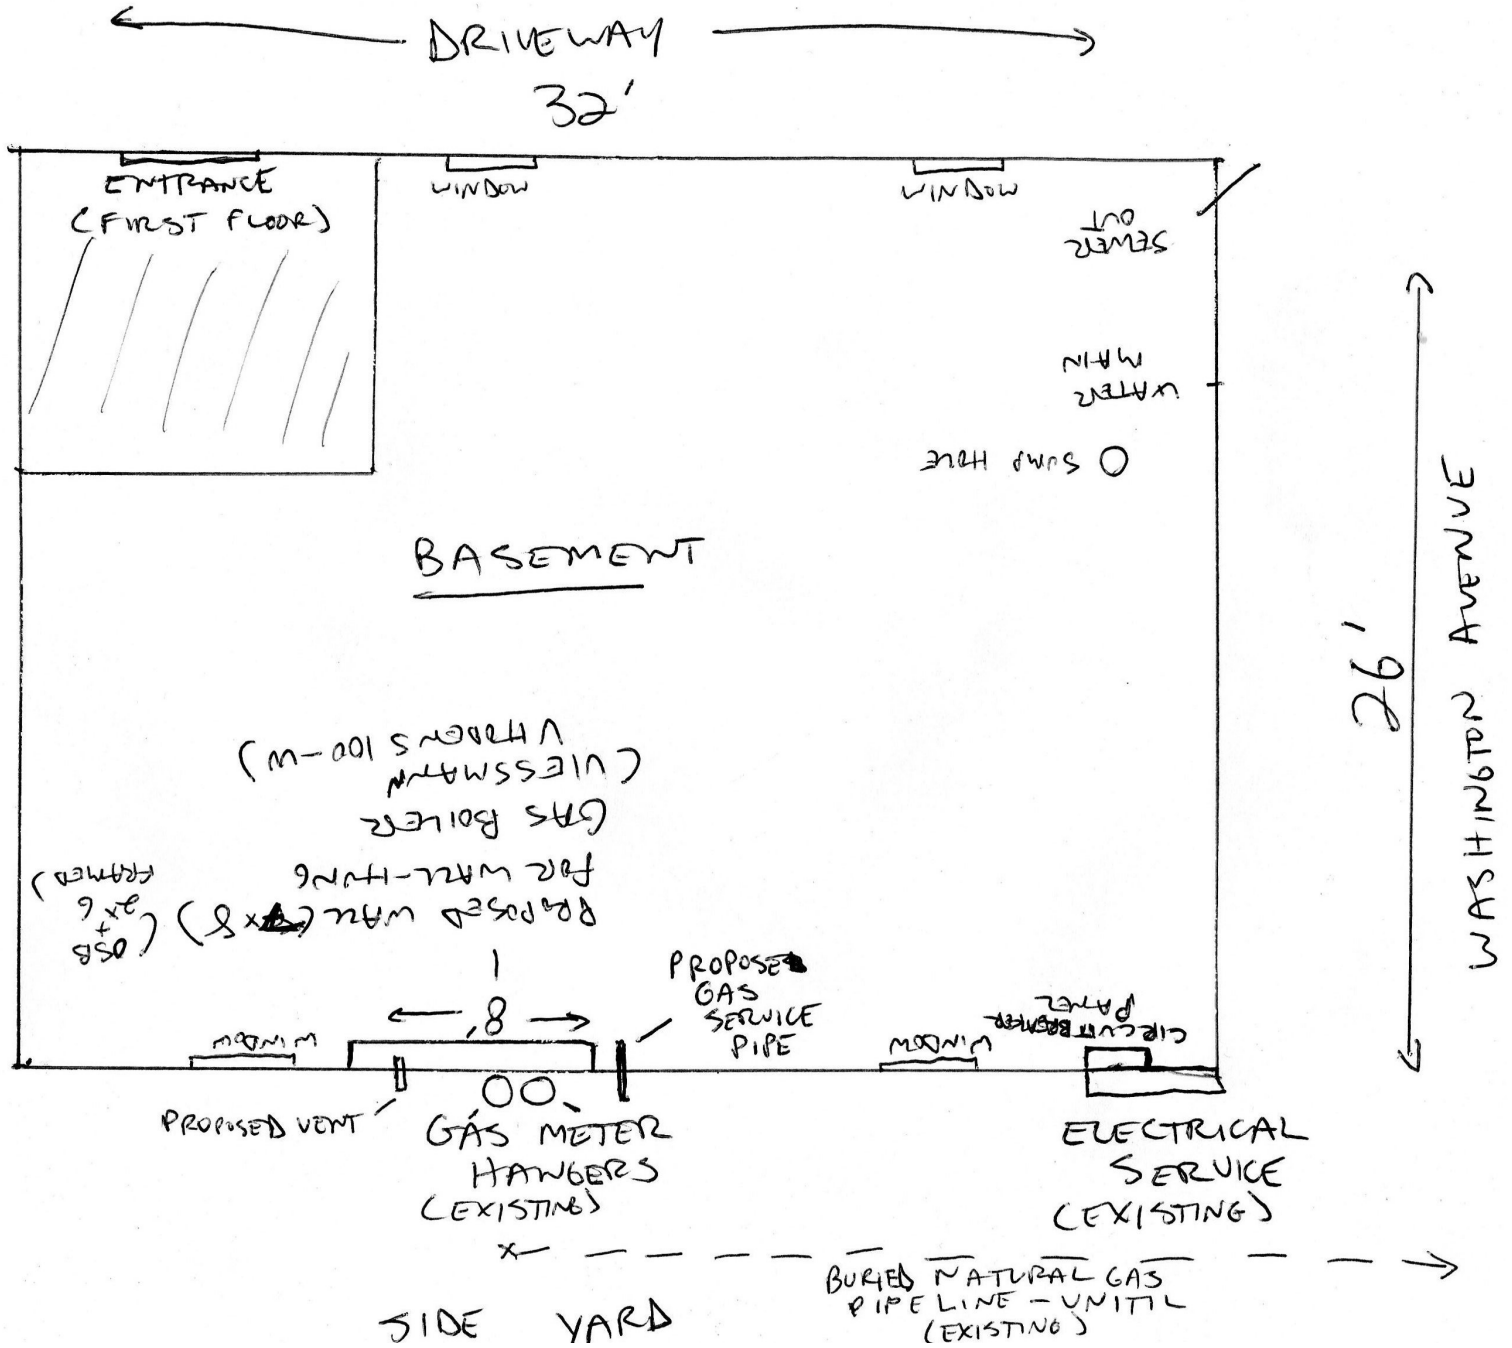 DRIVEWAY
32'
ENTRANCE
(FIRST FLOOR)
WINDOW
WINDOW
SEWER
OUT
WATER
MAIN
SUMP HOLE
BASEMENT
26'
WASHINGTON AVENUE
PROPOSED WALL ( x 8)
FOR WALL-HUNG
GAS BOILER
(VIESSMANN
VITODENS 100-W)
(OSB
+
2x6
FRAMED)
8'
PROPOSED
GAS
SERVICE
PIPE
WINDOW
WINDOW
CIRCUIT BREAKER
PANEL
PROPOSED VENT
GAS METER
HANGERS
(EXISTING)
ELECTRICAL
SERVICE
(EXISTING)
BURIED NATURAL GAS
PIPELINE - UNITIL
(EXISTING)
SIDE YARD